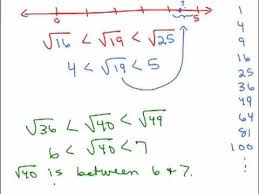 0 ? 5
√16 < √19 < √25
4 < √19 < 5
√36 < √40 < √49
6 < √40 < 7
√40 is between 6 & 7.
1
4
9
16
25
36
49
64
81
100
⋮